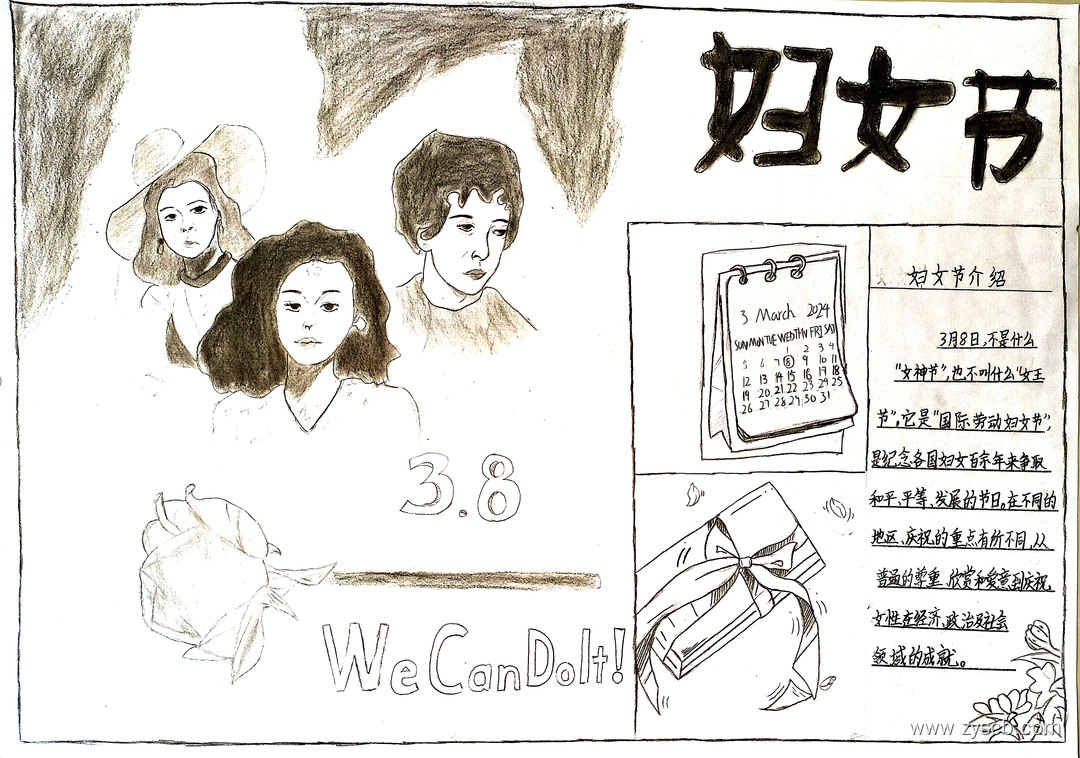 妇女节
3 March 2024
SUN MON TUE WED THN FRI SAT
1 2 3 4
5 6 7 8 9 10 11
12 13 14 15 16 17 18
19 20 21 22 23 24 25
26 27 28 29 30 31
妇女节介绍
3月8日,不是什么
"女神节",也不叫什么"女王
节"。它是"国际劳动妇女节",
是纪念各国妇女百余年来争取
和平、平等、发展的节日。在不同的
地区、庆祝的重点有所不同,从
普通的尊重、欣赏和爱意到庆祝
女性在经济、政治及社会
领域的成就。
3.8
We Can Do It!